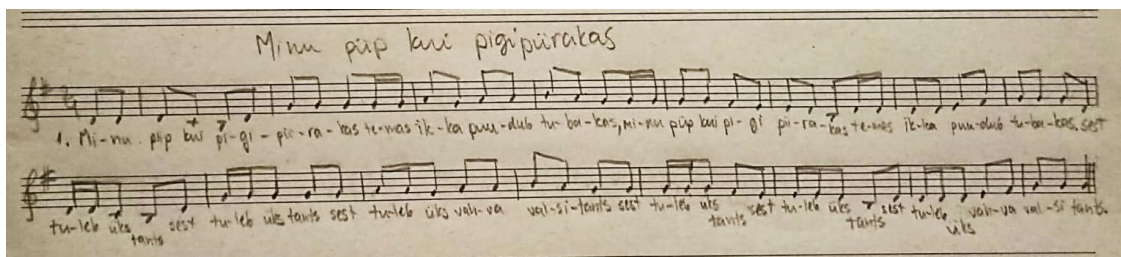 Minu piip kui pigipiirakas
1. Mi-nu piip kui pi-gi-pii-ra-kas te-mas ik-ka puu-dub tu-ba-kas, mi-nu piip kui pi-gi pii-ra-kas te-mas ik-ka puu-dub tu-ba-kas. sest
tu-leb üks tants sest tu-leb üks tants sest tu-leb üks vah-va val-si-tants sest tu-leb üks tants sest tu-leb üks tants sest tu-leb üks vah-va val-si tants.